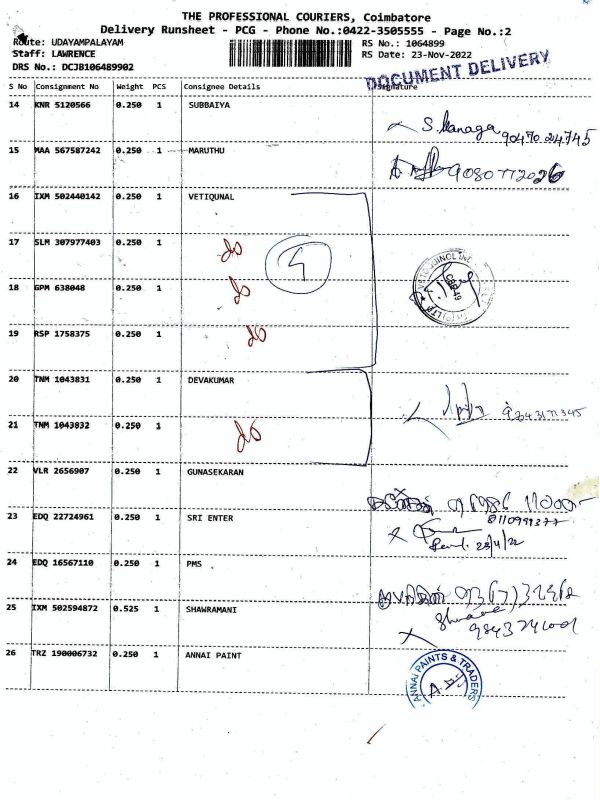 THE PROFESSIONAL COURIERS, Coimbatore
Delivery Runsheet - PCG - Phone No.:0422-3505555 - Page No.:2
Route: UDAYAMPALAYAM
RS No.: 1064899
Staff: LAWRENCE
RS Date: 23-Nov-2022
DRS No.: DCJB106489902
DOCUMENT DELIVERY
S No Consignment No Weight PCS Consignee Details Signature
14 KNR 5120566 0.250 1 SUBBAIYA
S. Kanaga 90470 24745
15 MAA 567587242 0.250 1 MARUTHU
9080772026
16 IXM 502440142 0.250 1 VETIQUNAL
17 SLM 307977403 0.250 1 do
4
18 GPM 638048 0.250 1 do
19 RSP 1758375 0.250 1 do
20 TNM 1043831 0.250 1 DEVAKUMAR
21 TNM 1043832 0.250 1 do
22 VLR 2656907 0.250 1 GUNASEKARAN
23 EDQ 22724961 0.250 1 SRI ENTER
24 EDQ 16567110 0.250 1 PMS
25 IXM 502594872 0.525 1 SHAWRAMANI
26 TRZ 190006732 0.250 1 ANNAI PAINT
ANNAI PAINTS & TRADERS